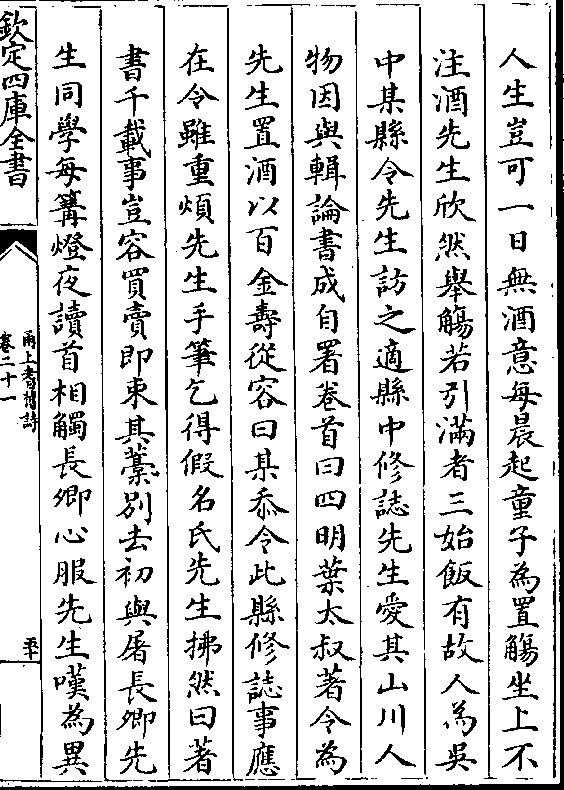 人生豈可一日無酒意每晨起童子為置觴坐上不
注酒先生欣然舉觴若引滿者三始飯有故人為吳
中某縣令先生訪之適縣中修誌先生愛其山川人
物因與輯論書成自署卷首曰四明葉太叔著令為
先生置酒以百金壽從容曰某忝令此縣修誌事應
在令雖重煩先生手筆乞得假名氏先生拂然曰著
書千載事豈容買賣即束其藁別去初與屠長卿先
生同學每篝燈夜讀首相觸長卿心服先生嘆為異
欽定四庫全書
甬上耆舊詩
卷二十一